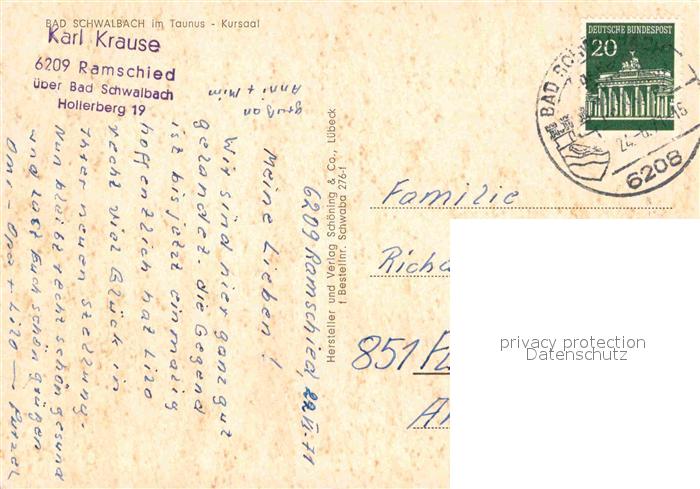 BAD SCHWALBACH im Taunus - Kursaal
Karl Krause
6209 Ramschied
über Bad Schwalbach
Hollerberg 19
gruß an
Anni + Mim
6209 Ramschied, 22.VI.71
Meine Lieben!
Wir sind hier ganz gut
gelandet. die Gegend
ist bis jetzt einmalig
hoffentlich hat Lilo
recht viel Glück in
ihrer neuen Stellung.
Nun bleibt recht schön gesund
und lasst Euch schön grüßen
Omi - Opa + Lilo — Purzel
Hersteller und Verlag Schöning & Co., Lübeck
f. Bestellnr. Schwaba 276-f
DEUTSCHE BUNDESPOST
20
BAD
24.-6.71-16
6208
Familie
Richa
851 Fü
privacy protection
Datenschutz